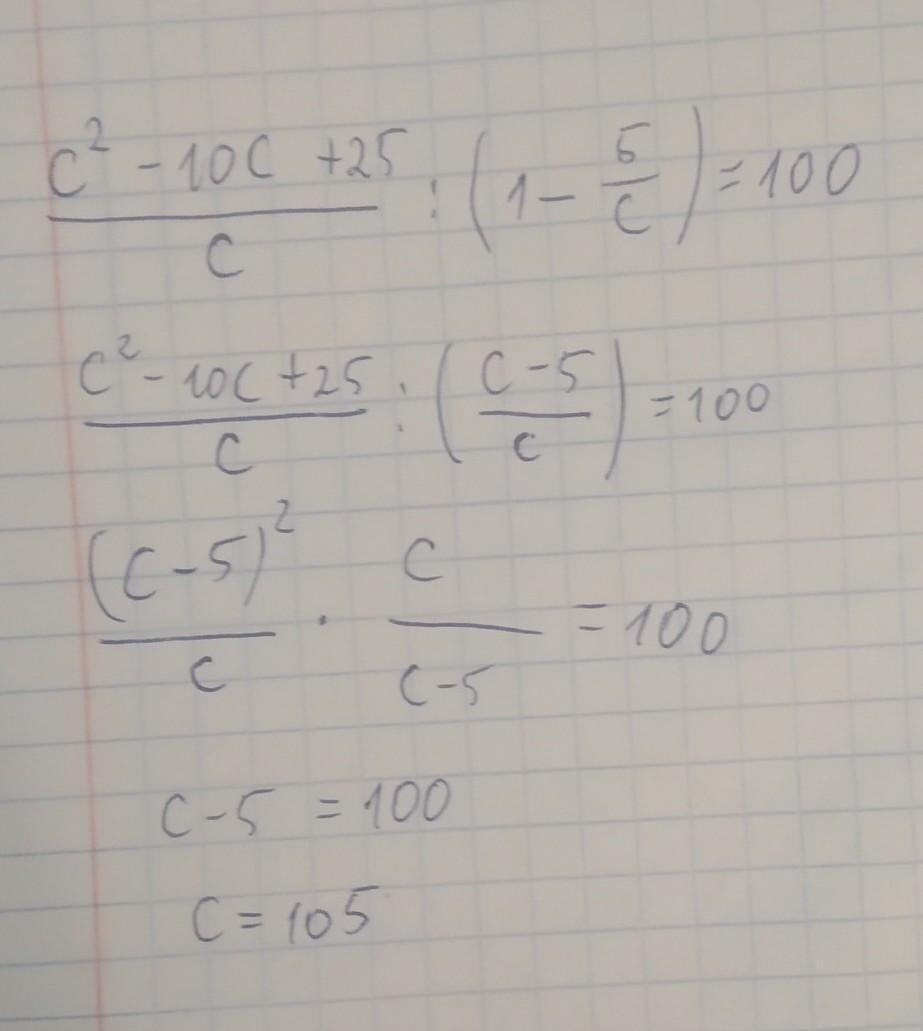 \frac{c^2 - 10c + 25}{c} : \left(1 - \frac{5}{c}\right) = 100
\frac{c^2 - 10c + 25}{c} : \left(\frac{c - 5}{c}\right) = 100
\frac{(c - 5)^2}{c} \cdot \frac{c}{c - 5} = 100
c - 5 = 100
c = 105